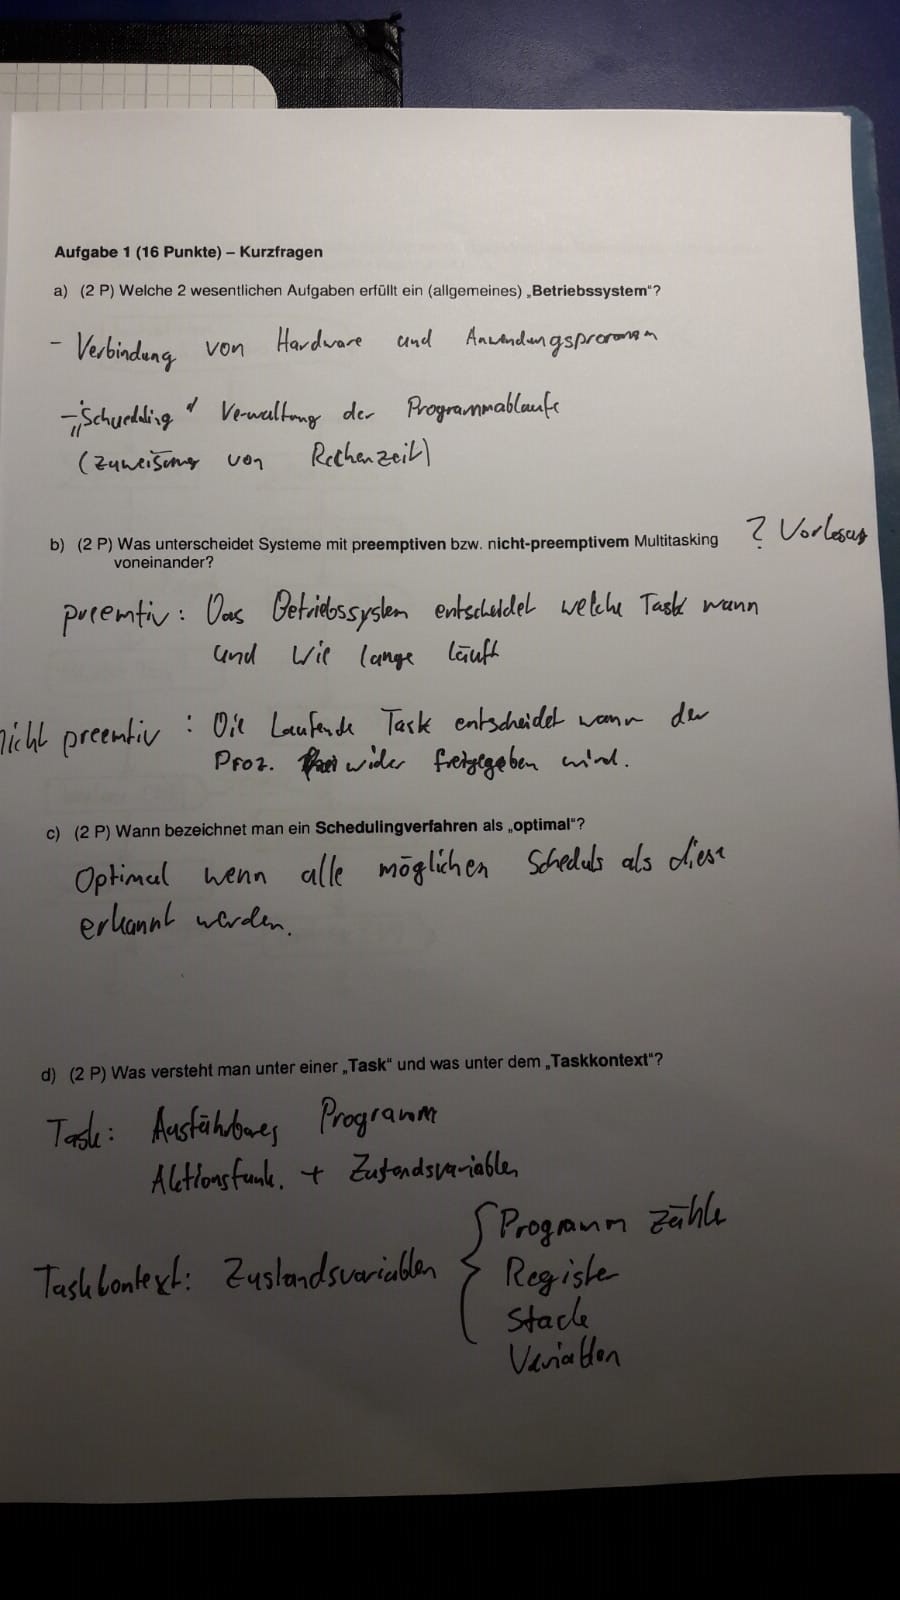 Aufgabe 1 (16 Punkte) – Kurzfragen
a) (2 P) Welche 2 wesentlichen Aufgaben erfüllt ein (allgemeines) „Betriebssystem“?
- Verbindung von Hardware und
- „Schuedling“ Verwaltung der Programmabläufe
(Zuweisung von Rechenzeit)
b) (2 P) Was unterscheidet Systeme mit preemptiven bzw. nicht-preemptivem Multitasking ?
voneinander?
preemtiv: Das Betriebssystem entscheidet welche Task wann
und wie lange läuft
nicht preemtiv: Die Laufende Task entscheidet wann der
Proz. wider freigegeben wird.
c) (2 P) Wann bezeichnet man ein Schedulingverfahren als „optimal“?
Optimal wenn alle möglichen Scheduls als diese
erkannt werden.
d) (2 P) Was versteht man unter einer „Task“ und was unter dem „Taskkontext“?
Task: Ausführbares Programm
Aktionsfunk. + Zustandsvariablen
Programm Zähler
Taskkontext: Zustandsvariablen
Register
Stack
Variablen